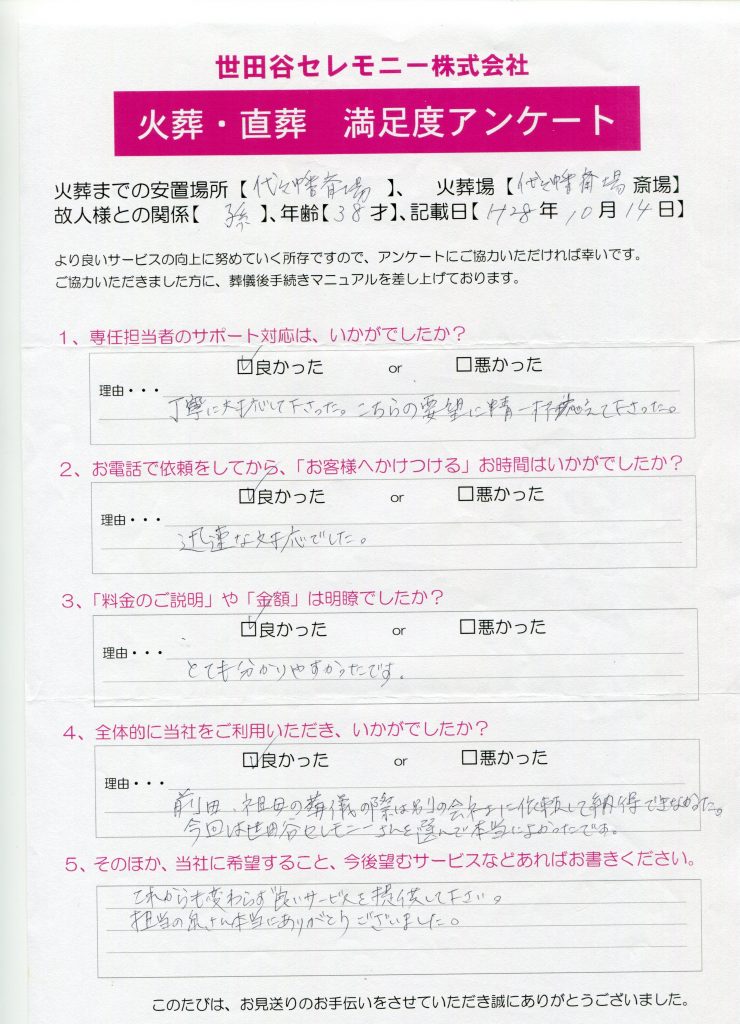 世田谷セレモニー株式会社
火葬・直葬 満足度アンケート
火葬までの安置場所【代々幡斎場】、 火葬場【代々幡斎場 斎場】
故人様との関係【孫】、年齢【38才】、記載日【H28年10月14日】
より良いサービスの向上に努めていく所存ですので、アンケートにご協力いただければ幸いです。
ご協力いただきました方に、葬儀後手続きマニュアルを差し上げております。
1、専任担当者のサポート対応は、いかがでしたか？
☑良かった or □悪かった
理由・・・
丁寧に対応して下さった。こちらの要望に精一杯応えて下さった。
2、お電話で依頼をしてから、「お客様へかけつける」お時間はいかがでしたか？
☑良かった or □悪かった
理由・・・
迅速な対応でした。
3、「料金のご説明」や「金額」は明瞭でしたか？
☑良かった or □悪かった
理由・・・
とても分かりやすかったです。
4、全体的に当社をご利用いただき、いかがでしたか？
☑良かった or □悪かった
理由・・・
前回、祖母の葬儀の際は別の会社に依頼して納得できなかった。
今回は世田谷セレモニーさんを選んで本当によかったです。
5、そのほか、当社に希望すること、今後望むサービスなどあればお書きください。
これからも変わらず良いサービスを提供して下さい。
担当の さん本当にありがとうございました。
このたびは、お見送りのお手伝いをさせていただき誠にありがとうございました。